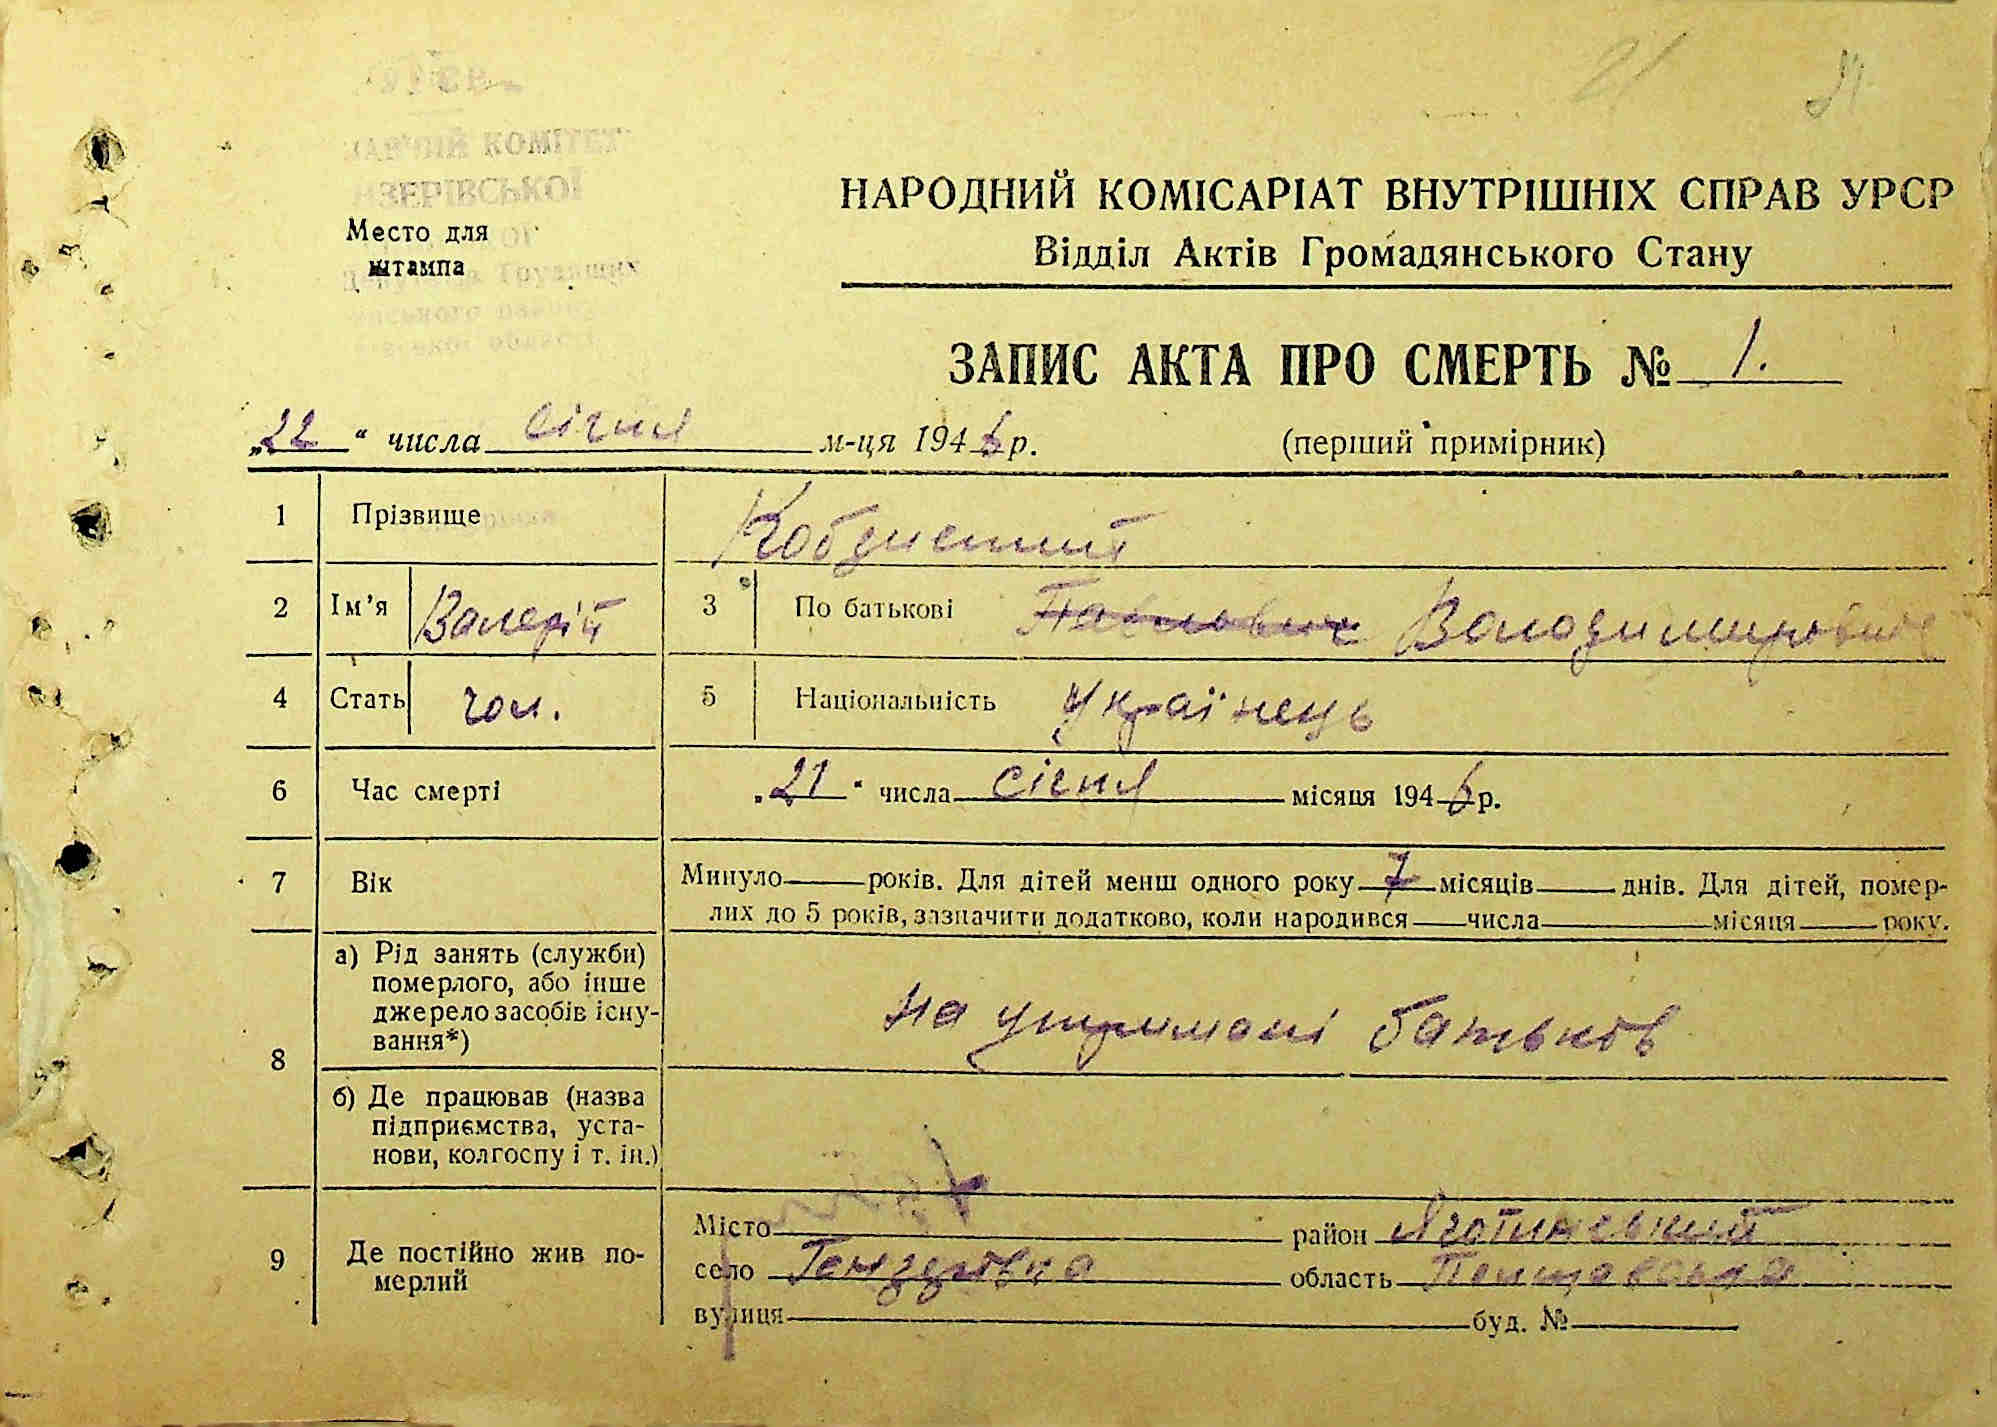 21
ЗЕРІВСЬКОЇ
Место для
штампа
НАРОДНИЙ КОМІСАРІАТ ВНУТРІШНІХ СПРАВ УРСР
Відділ Актів Громадянського Стану
ЗАПИС АКТА ПРО СМЕРТЬ № 1.
„22“ числа січня м-ця 1946 р.
(перший примірник)
1 Прізвище
2 Ім'я Валерій 3 По батькові Павлович Володимирович
4 Стать чол. 5 Національність Українець
6 Час смерті „21“ числа січня місяця 1946 р.
7 Вік Минуло років. Для дітей менш одного року 7 місяців днів. Для дітей, помер-
лих до 5 років, зазначити додатково, коли народився числа місяця року.
8 а) Рід занять (служби)
померлого, або інше
джерело засобів існу-
вання*)
на утримані батьків
б) Де працював (назва
підприємства, уста-
нови, колгоспу і т. ін.)
9 Де постійно жив по-
мерлий
Місто район Яготинський
село область Полтавська
вулиця буд. №